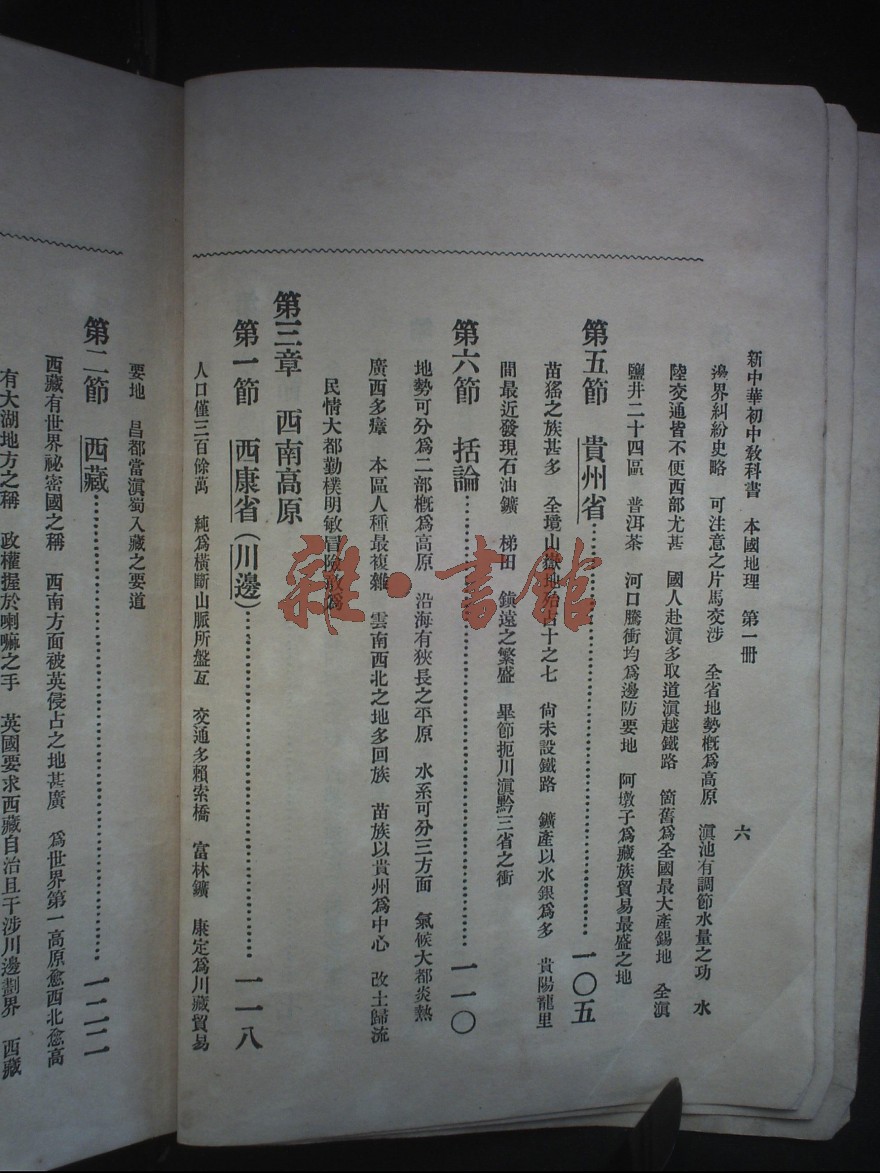 新中華初中敎科書　本國地理　第一册　六
界糾紛史略　可注意之片馬交涉　全省地勢槪爲高原　滇池有調節水量之功　水
陸交通皆不便西部尤甚　國人赴滇多取道滇越鐵路　箇舊爲全國最大產錫地　全滇
鹽井二十四區　普洱茶　河口騰衝均爲邊防要地　阿墩子爲藏族貿易最盛之地
第五節　貴州省…………一〇五
苗猺之族甚多　全境山嶽地殆占十之七　尙未設鐵路　鑛產以水銀爲多　貴陽龍里
間最近發現石油鑛　梯田　鎭遠之繁盛　畢節扼川滇黔三省之衝
第六節　括論…………一一〇
地勢可分爲二部槪爲高原　沿海有狹長之平原　水系可分三方面　氣候大都炎熱
廣西多瘴　本區人種最複雜　雲南西北之地多回族　苗族以貴州爲中心　改土歸流
民情大都勤樸明敏冒險
第三章　西南高原
第一節　西康省（川邊）…………一一八
人口僅三百餘萬　純爲橫斷山脈所盤亙　交通多賴索橋　富林鑛　康定爲川藏貿易
要地　昌都當滇蜀入藏之要道
第二節　西藏…………一二二
西藏有世界祕密國之稱　西南方面被英侵占之地甚廣　爲世界第一高原愈西北愈高
有大湖地方之稱　政權握於喇嘛之手　英國要求西藏自治且干涉川邊劃界　西藏
雜·書館